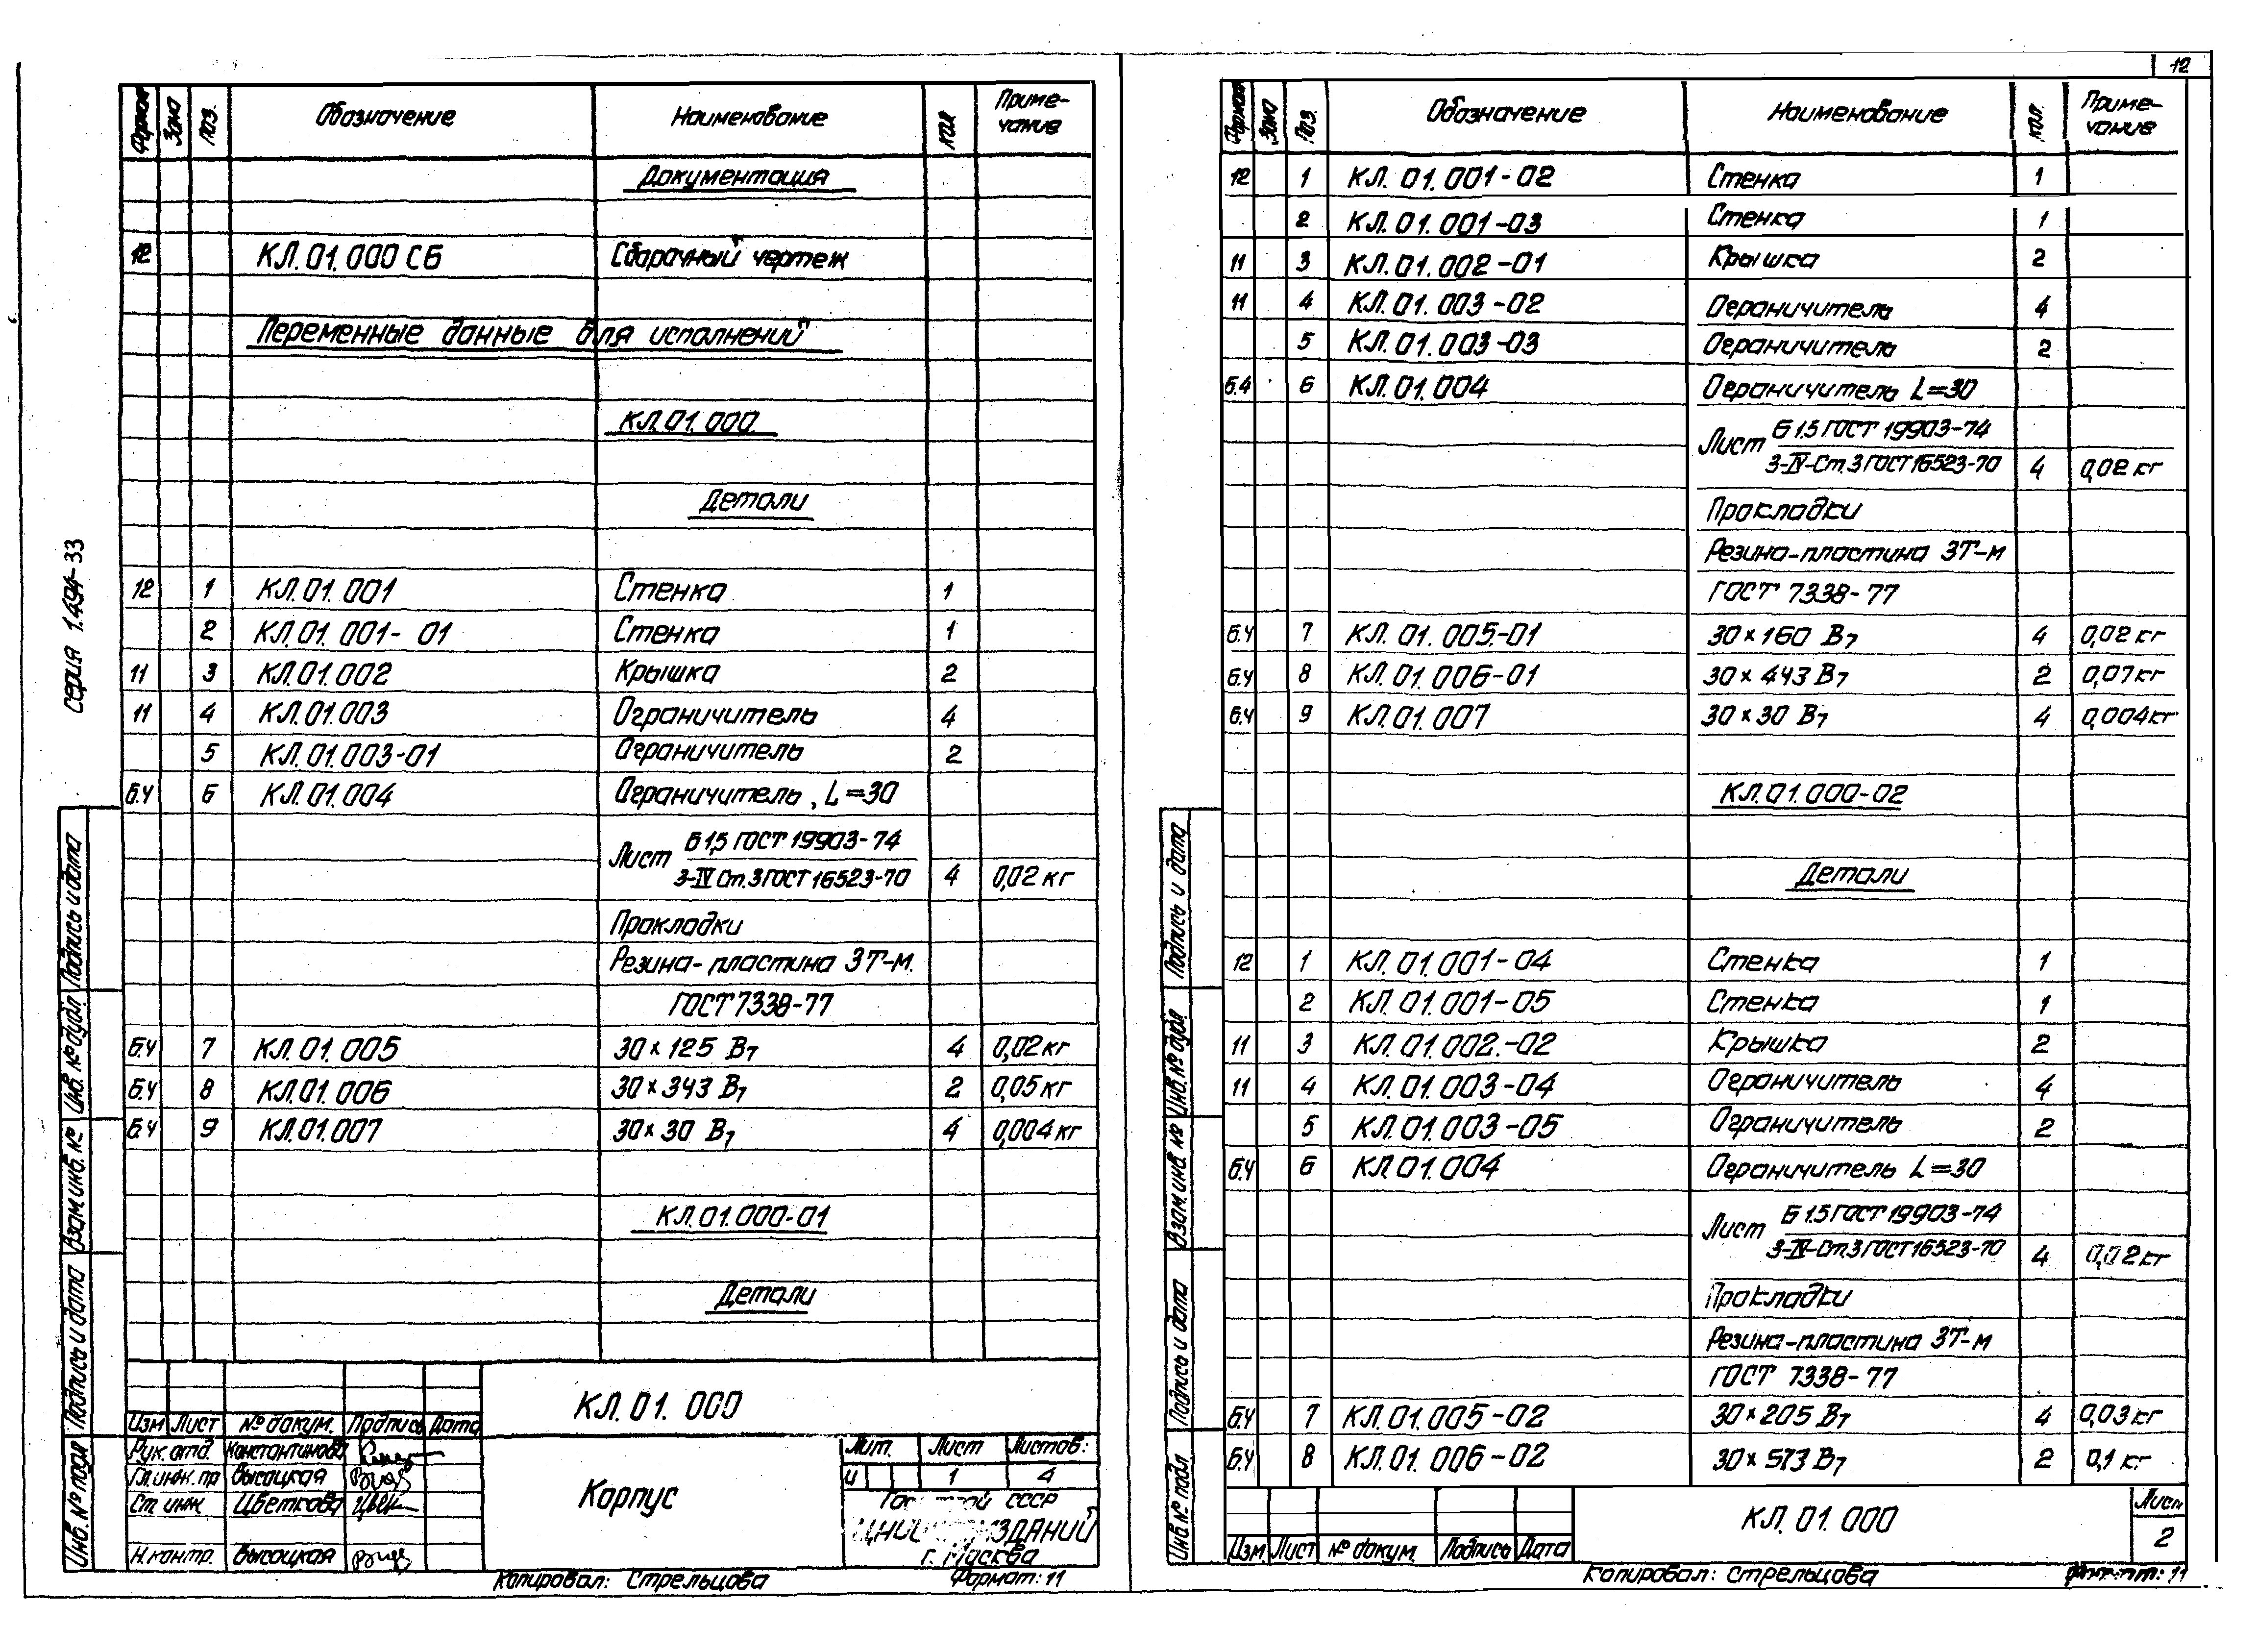 12
серия 1.494-33
Формат Зона Поз. Обозначение Наименование Кол. Приме-
чание
Документация
12 КЛ.01.000 СБ Сборочный чертеж
Переменные данные для исполнений
КЛ.01.000
Детали
12 1 КЛ.01.001 Стенка 1
2 КЛ.01.001-01 Стенка 1
11 3 КЛ.01.002 Крышка 2
11 4 КЛ.01.003 Ограничитель 4
5 КЛ.01.003-01 Ограничитель 2
Б.Ч 6 КЛ.01.004 Ограничитель, L=30
Лист Б 1,5 ГОСТ 19903-74
3-IV Ст.3 ГОСТ 16523-70 4 0,02 кг
Прокладки
Резина-пластина 3Т-м.
ГОСТ 7338-77
Б.Ч 7 КЛ.01.005 30×125 В7 4 0,02 кг
Б.Ч 8 КЛ.01.006 30×343 В7 2 0,05 кг
Б.Ч 9 КЛ.01.007 30×30 В7 4 0,004 кг
КЛ.01.000-01
Детали
Подпись и дата
Инв.№ дубл.
Взам инв. №
Подпись и дата
Инв.№ подл
КЛ.01.000
Изм Лист № докум. Подпись Дата
Рук.отд. Константинова
Гл.инж.пр Высоцкая
Ст. инж Цветкова
Н.контр. Высоцкая
Корпус
Лит. Лист Листов:
и 1 4
СССР
г. Москва
Копировал: Стрельцова Формат: 11
Формат Зона Поз. Обозначение Наименование кол. Приме-
чание
12 1 КЛ.01.001-02 Стенка 1
2 КЛ.01.001-03 Стенка 1
11 3 КЛ.01.002-01 Крышка 2
11 4 КЛ.01.003-02 Ограничитель 4
5 КЛ.01.003-03 Ограничитель 2
Б.Ч 6 КЛ.01.004 Ограничитель L=30
Лист Б 1.5 ГОСТ 19903-74
3-IV-Ст.3 ГОСТ 16523-70 4 0,02 кг
Прокладки
Резина-пластина 3Т-м
ГОСТ 7338-77
Б.Ч 7 КЛ.01.005-01 30×160 В7 4 0,02 кг
Б.Ч 8 КЛ.01.006-01 30×443 В7 2 0,07 кг
Б.Ч 9 КЛ.01.007 30×30 В7 4 0,004 кг
КЛ.01.000-02
Детали
12 1 КЛ.01.001-04 Стенка 1
2 КЛ.01.001-05 Стенка 1
11 3 КЛ.01.002.-02 Крышка 2
11 4 КЛ.01.003-04 Ограничитель 4
5 КЛ.01.003-05 Ограничитель 2
Б.Ч 6 КЛ.01.004 Ограничитель L=30
Лист Б 1.5 ГОСТ 19903-74
3-IV-Ст.3 ГОСТ 16523-70 4 0,02 кг
Прокладки
Резина-пластина 3Т-м
ГОСТ 7338-77
Б.Ч 7 КЛ.01.005-02 30×205 В7 4 0,03 кг
Б.Ч 8 КЛ.01.006-02 30×573 В7 2 0,1 кг
Подпись и дата
Инв.№ дубл
Взам.инв. №
Подпись и дата
Инв.№ подл
Изм. Лист № докум. Подпись Дата
КЛ.01.000
Лист
2
Копировал: Стрельцова Формат: 11